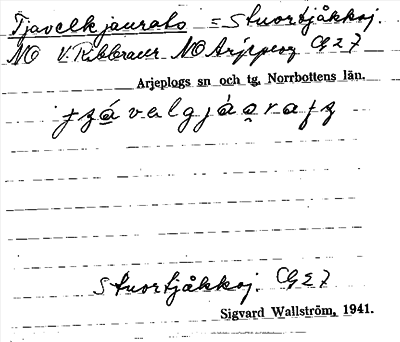 Tjavelkjauratj = Stuortjåkkoj.
NO V. Ribbraur NO Arjeplog CG 27
Arjeplogs sn och tg, Norrbottens län.
Stuortjåkkoj. CG 27
Sigvard Wallström, 1941.